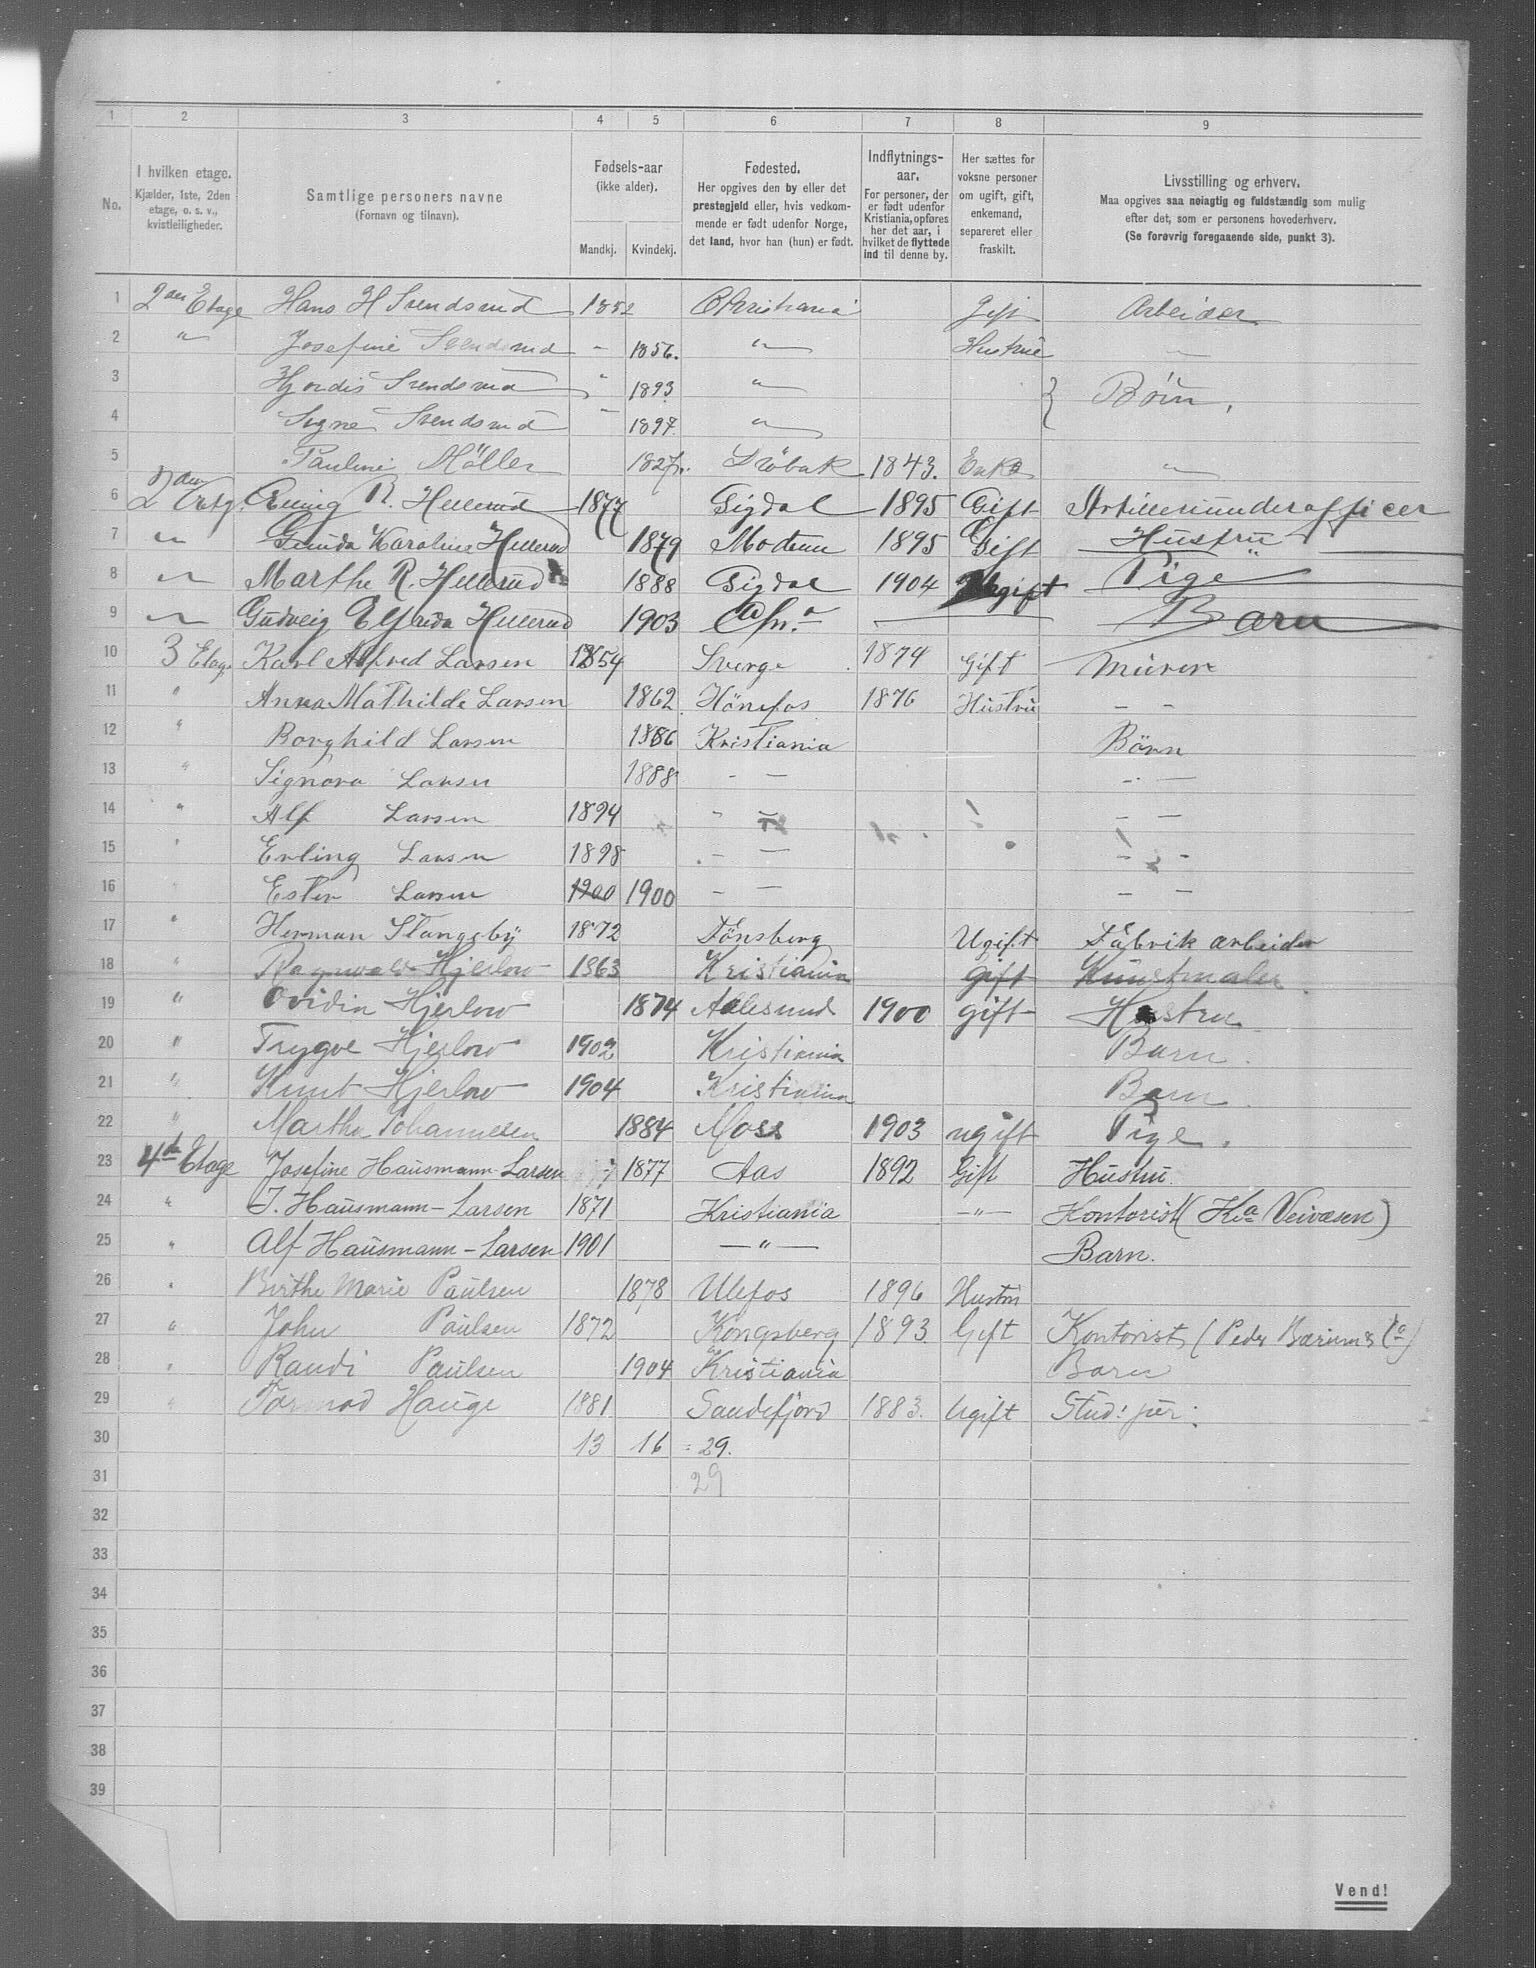 1 2 3 4 5 6 7 8 9
No. I hvilken etage. Kjælder, 1ste, 2den etage, o. s. v., kvistleiligheder. Samtlige personers navne (Fornavn og tilnavn). Fødsels-aar (ikke alder). Mandkj. Kvindekj. Fødested. Her opgives den by eller det prestegjeld eller, hvis vedkommende er født udenfor Norge, det land, hvor han (hun) er født. Indflytnings-aar. For personer, der er født udenfor Kristiania, opføres her det aar, i hvilket de flyttede ind til denne by. Her sættes for voksne personer om ugift, gift, enkemand, separeret eller fraskilt. Livsstilling og erhverv. Maa opgives saa nøiagtig og fuldstændig som mulig efter det, som er personens hovederhverv. (Se forøvrig foregaaende side, punkt 3).
1 2den Etage Hans H Svendsrud 1852 Christiania Gift Arbeider
2 " Josefine Svendsrud - 1856. " Hustrue "
3 Hjordis Svendsrud " 1893 " } Börn.
4 Signe Svendsrud " 1897 "
5 Pauline Möller 1827. Dröbak 1843. Enke "
6 2den Etg. R. Hellerud 1877 Sigdal 1895 Gift Artilleriunderofficer
7 " Gunda Karoline Hellerud 1879 Modum 1895 Gift Hustru
8 " Marthe R. Hellerud 1888 Sigdal 1904 Ugift Pige
9 " Gudveig Elfrida Hellerud 1903 Chr.a Barn
10 3 Etage Karl Alfred Larsen 1854 Sverge 1874 Gift Murer
11 " Anna Mathilde Larsen 1862 Hönefos 1876 Hustru - -
12 " Borghild Larsen 1886 Kristiania Börn
13 " Signora Larsen 1888 - - - -
14 " Alf Larsen 1894 - - - -
15 " Erling Larsen 1898 - - - -
16 " Ester Larsen 1900 1900 - - - -
17 " Herman Stangeby 1872 Tönsberg Ugift Fabrik arbeider
18 " Ragnvald Hjerlow 1863 Kristiania gift Kunstmaler
19 " Ovidia Hjerlow 1874 Aalesund 1900 gift Hustru
20 " Trygve Hjerlow 1902 Kristiania Barn.
21 " Knut Hjerlow 1904 Kristiania Barn
22 " Martha Johannesen 1884 Moss 1903 ugift Pige.
23 4de Etage Josefine Hausmann-Larsen 1877 Aas 1892 Gift Hustru.
24 " J. Hausmann-Larsen 1871 Kristiania -"- Kontorist (Kra Veivæsen)
25 " Alf Hausmann-Larsen 1901 -"- Barn.
26 " Birthe Marie Paulsen 1878 Ulefos 1896 Hustru
27 " John Paulsen 1872 Kongsberg 1893. Gift Kontorist (Peder Bærums Co)
28 " Randi Paulsen 1904 Kristiania Barn
29 " Tormod Hauge 1881 Sandefjord 1883. Ugift Stud: jur:
30 13 16 = 29.
31 29
32
33
34
35
36
37
38
39
Vend!